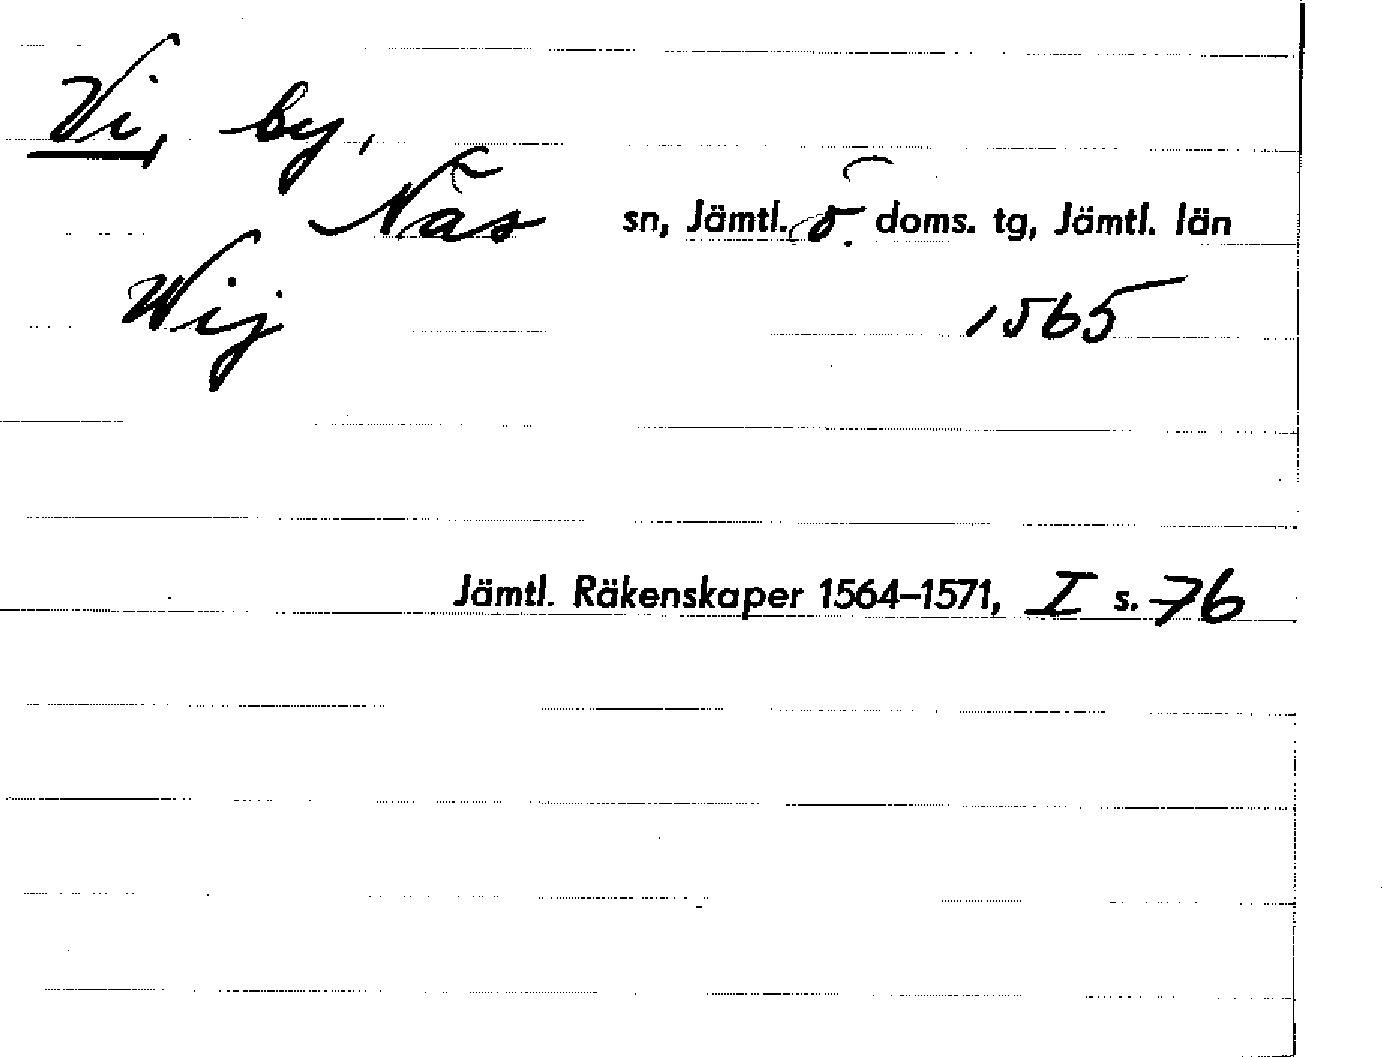 Vi, by,
Näs sn, Jämtl. ö. doms. tg, Jämtl. län
Wij 1565
Jämtl. Räkenskaper 1564–1571, I s. 76